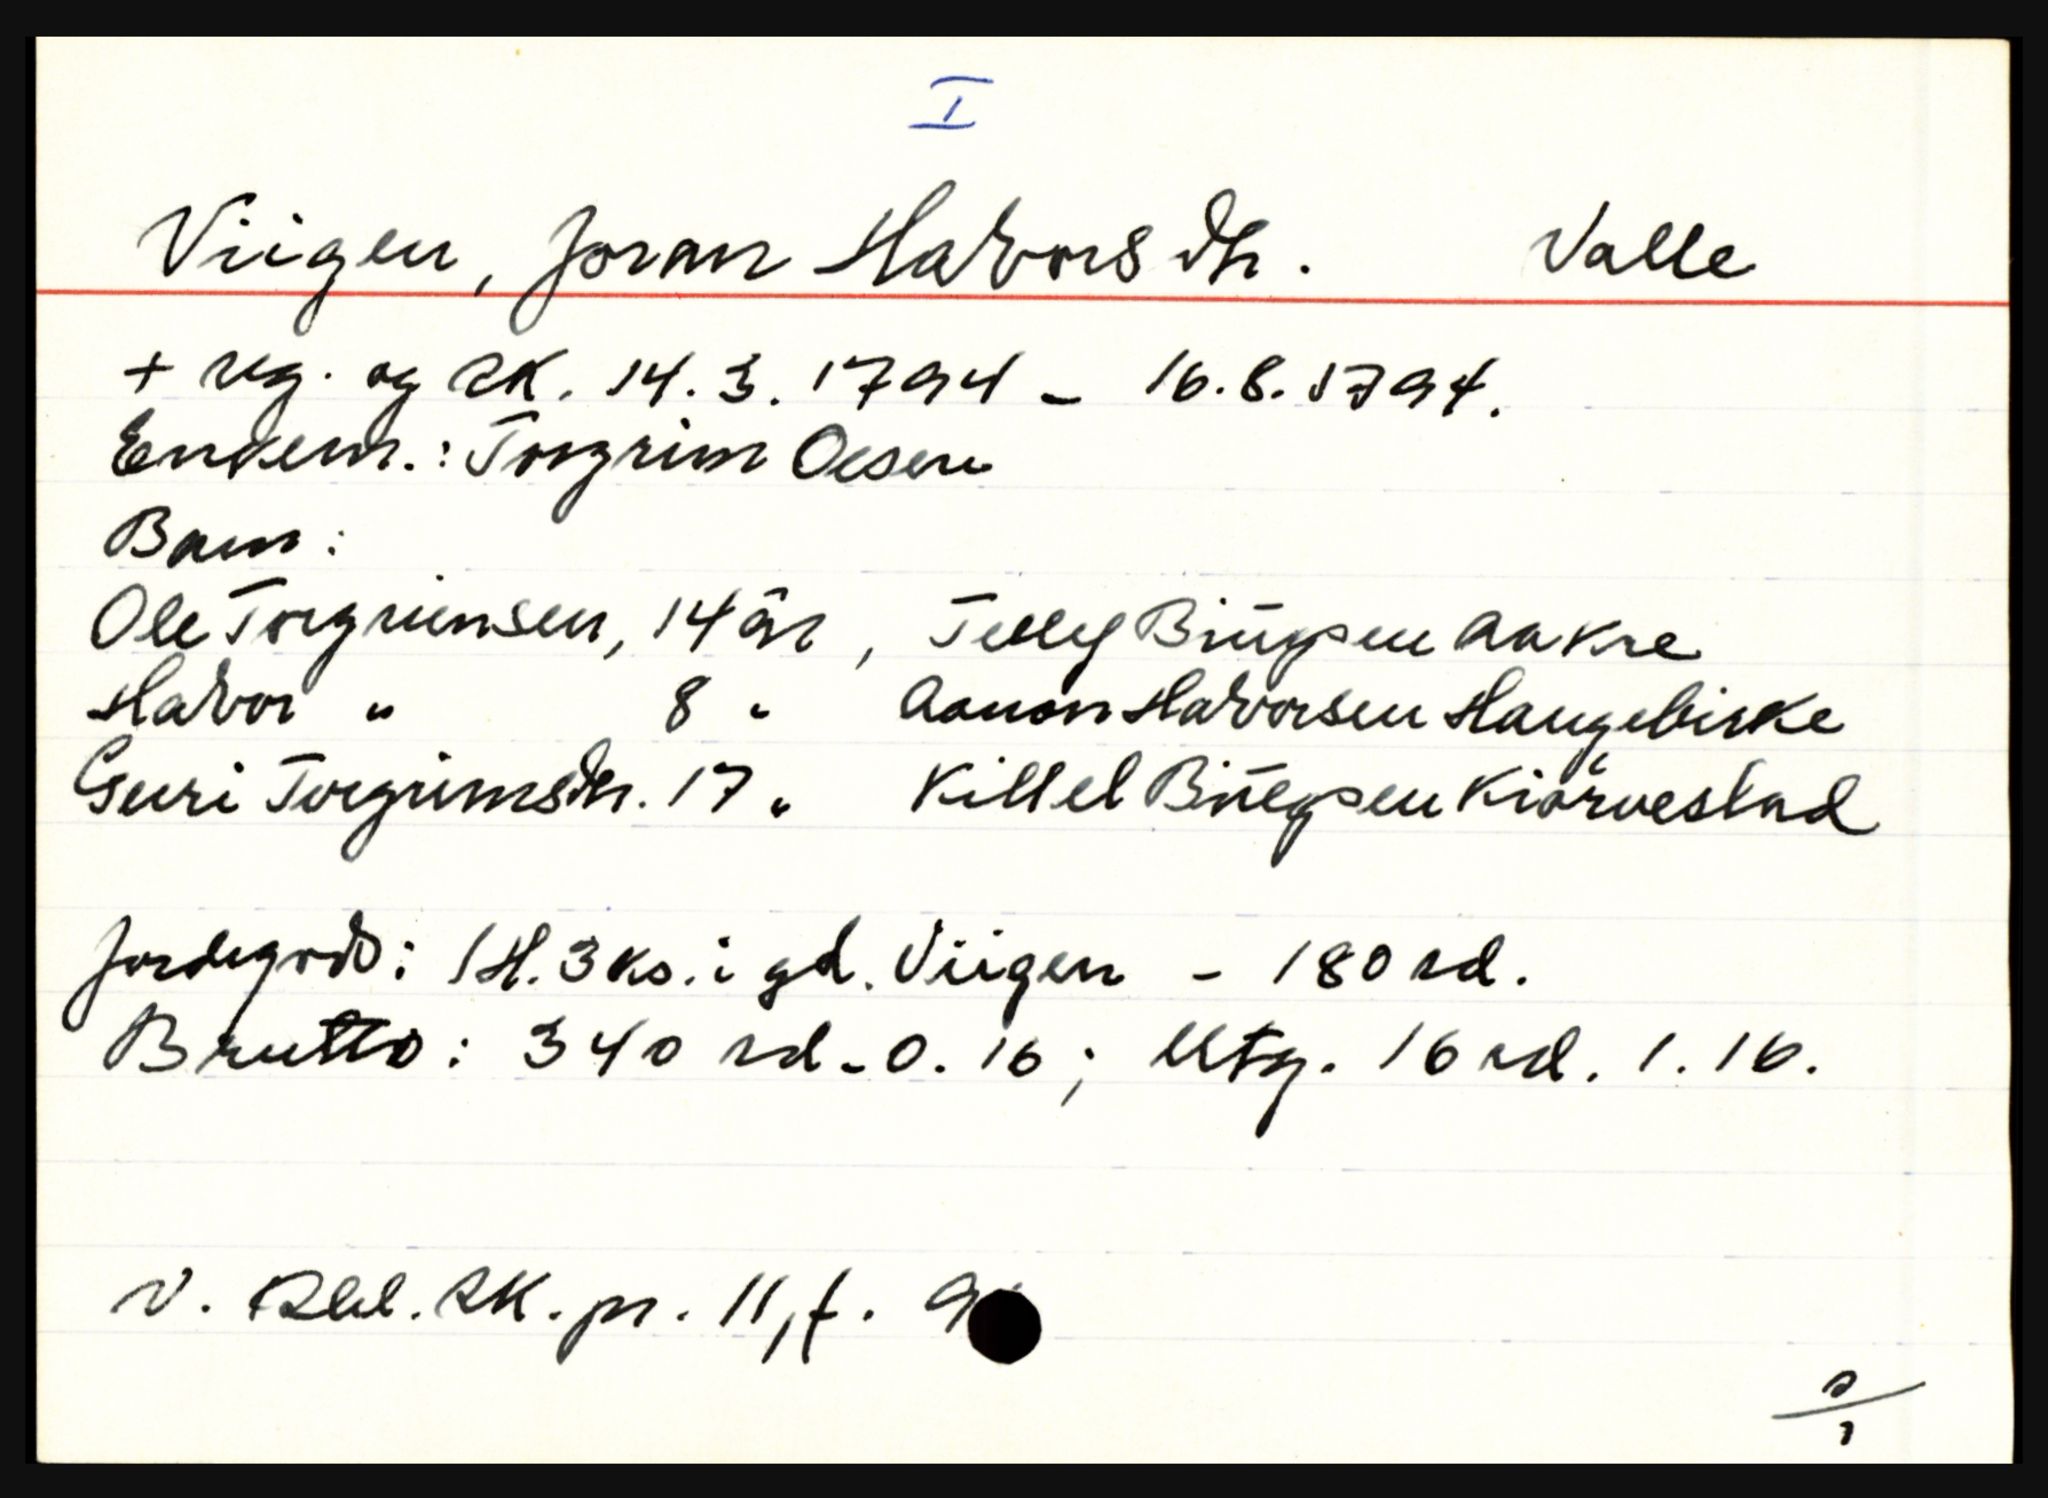 I
Viigen, Joran Halvorsdtr. Valle
+ reg. og SK. 14.3.1794 - 16.8.1794.
Enkem.: Torgrim Olsen
Barn:
Ole Torgrimsen, 14 år, Tellef Birgesen Aakre
Halvor " 8 " Aanon Halvorsen Haugebirke
Guri Torgrimsdtr. 17 " Killel Birgesen Kiörvestad
Jordegods: 1 H. 3 ks. i gd. Viigen - 180 rd.
Brutto: 340 rd - 0. 16; Utg. 16 rd. 1. 16.
V. Rbl. SK. pr. 11, f. 9